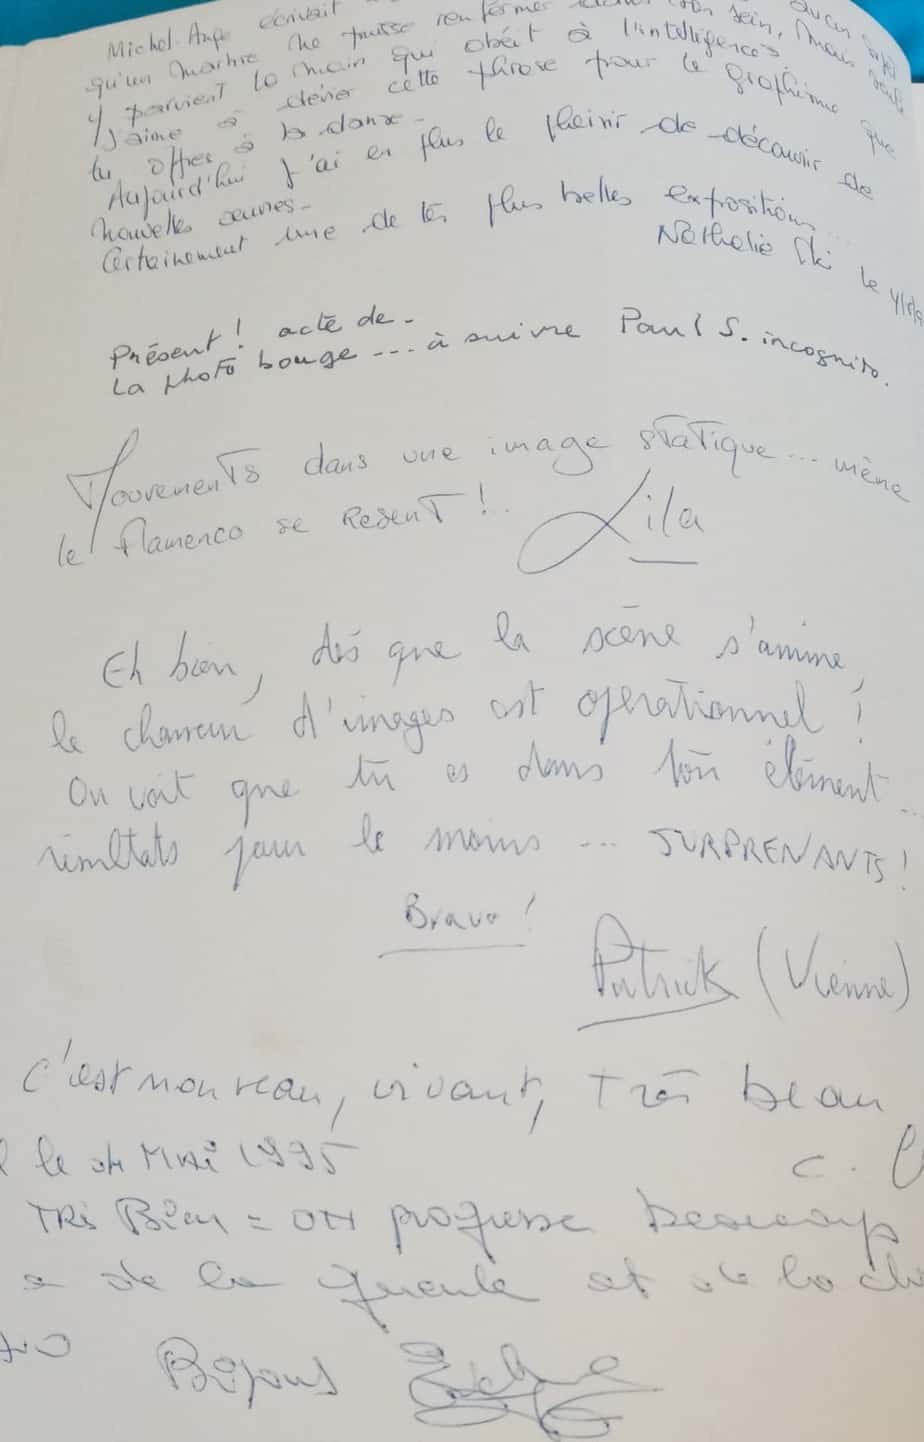 Michel-Ange écrivait aucun
qu'un marbre ne puisse renfermer dans son sein, mais seule
y parvient la main qui obéit à l'intelligence.
J'aime à cette phrase pour le graphisme que
tu offres à la danse.
Aujourd'hui j'ai en plus le plaisir de découvrir de
nouvelles œuvres.
Certainement une de tes plus belles expositions
Nathalie le
Présent ! acte de.
La photo bouge ... à suivre Paul S. incognito.
Mouvements dans une image statique ... même
le flamenco se resent !
Lila
Eh bien, dès que la scène s'anime,
le chasseur d'images est opérationnel !
On voit que tu es dans ton élément ..
résultats pour le moins ... SURPRENANTS !
Bravo !
Patrick (Vienne)
C'est nouveau, vivant, très beau
le 04 MAI 1995
C.
TRÈS Bien = ON progresse beaucoup
a de la gueule et de la
Bisous